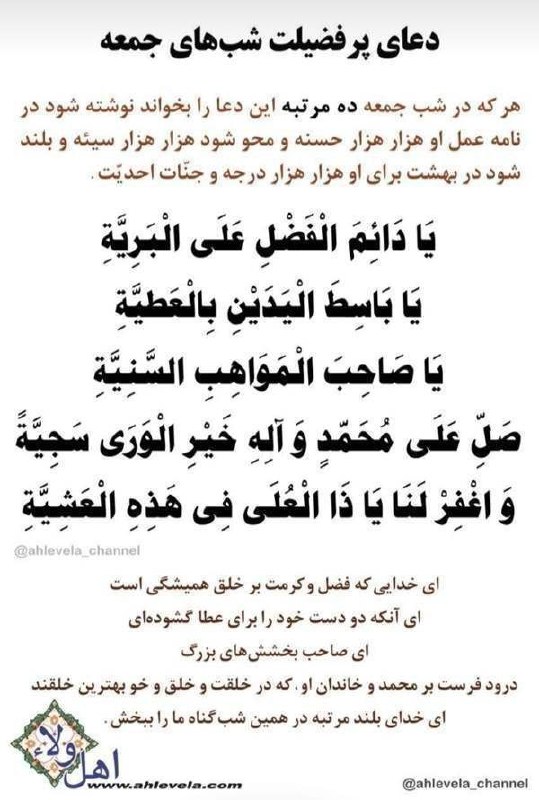 دعای پر فضیلت شب‌های جمعه
هر که در شب جمعه ده مرتبه این دعا را بخواند نوشته شود در
نامه عمل او هزار هزار حسنه و محو شود هزار هزار سیئه و بلند
شود در بهشت برای او هزار هزار درجه و جنّات احدیّت.
يَا دَائِمَ الْفَضْلِ عَلَى الْبَرِيَّةِ
يَا بَاسِطَ الْيَدَيْنِ بِالْعَطِيَّةِ
يَا صَاحِبَ الْمَوَاهِبِ السَّنِيَّةِ
صَلِّ عَلَى مُحَمَّدٍ وَ آلِهِ خَيْرِ الْوَرَى سَجِيَّةً
وَ اغْفِرْ لَنَا يَا ذَا الْعُلَى فِى هَذِهِ الْعَشِيَّةِ
@ahlevela_channel
ای خدایی که فضل و کرمت بر خلق همیشگی است
ای آنکه دو دست خود را برای عطا گشوده‌ای
ای صاحب بخشش‌های بزرگ
درود فرست بر محمد و خاندان او، که در خلقت و خلق و خو بهترین خلقند
ای خدای بلند مرتبه در همین شب گناه ما را ببخش.
اهل ولاء
www.ahlevela.com
@ahlevela_channel